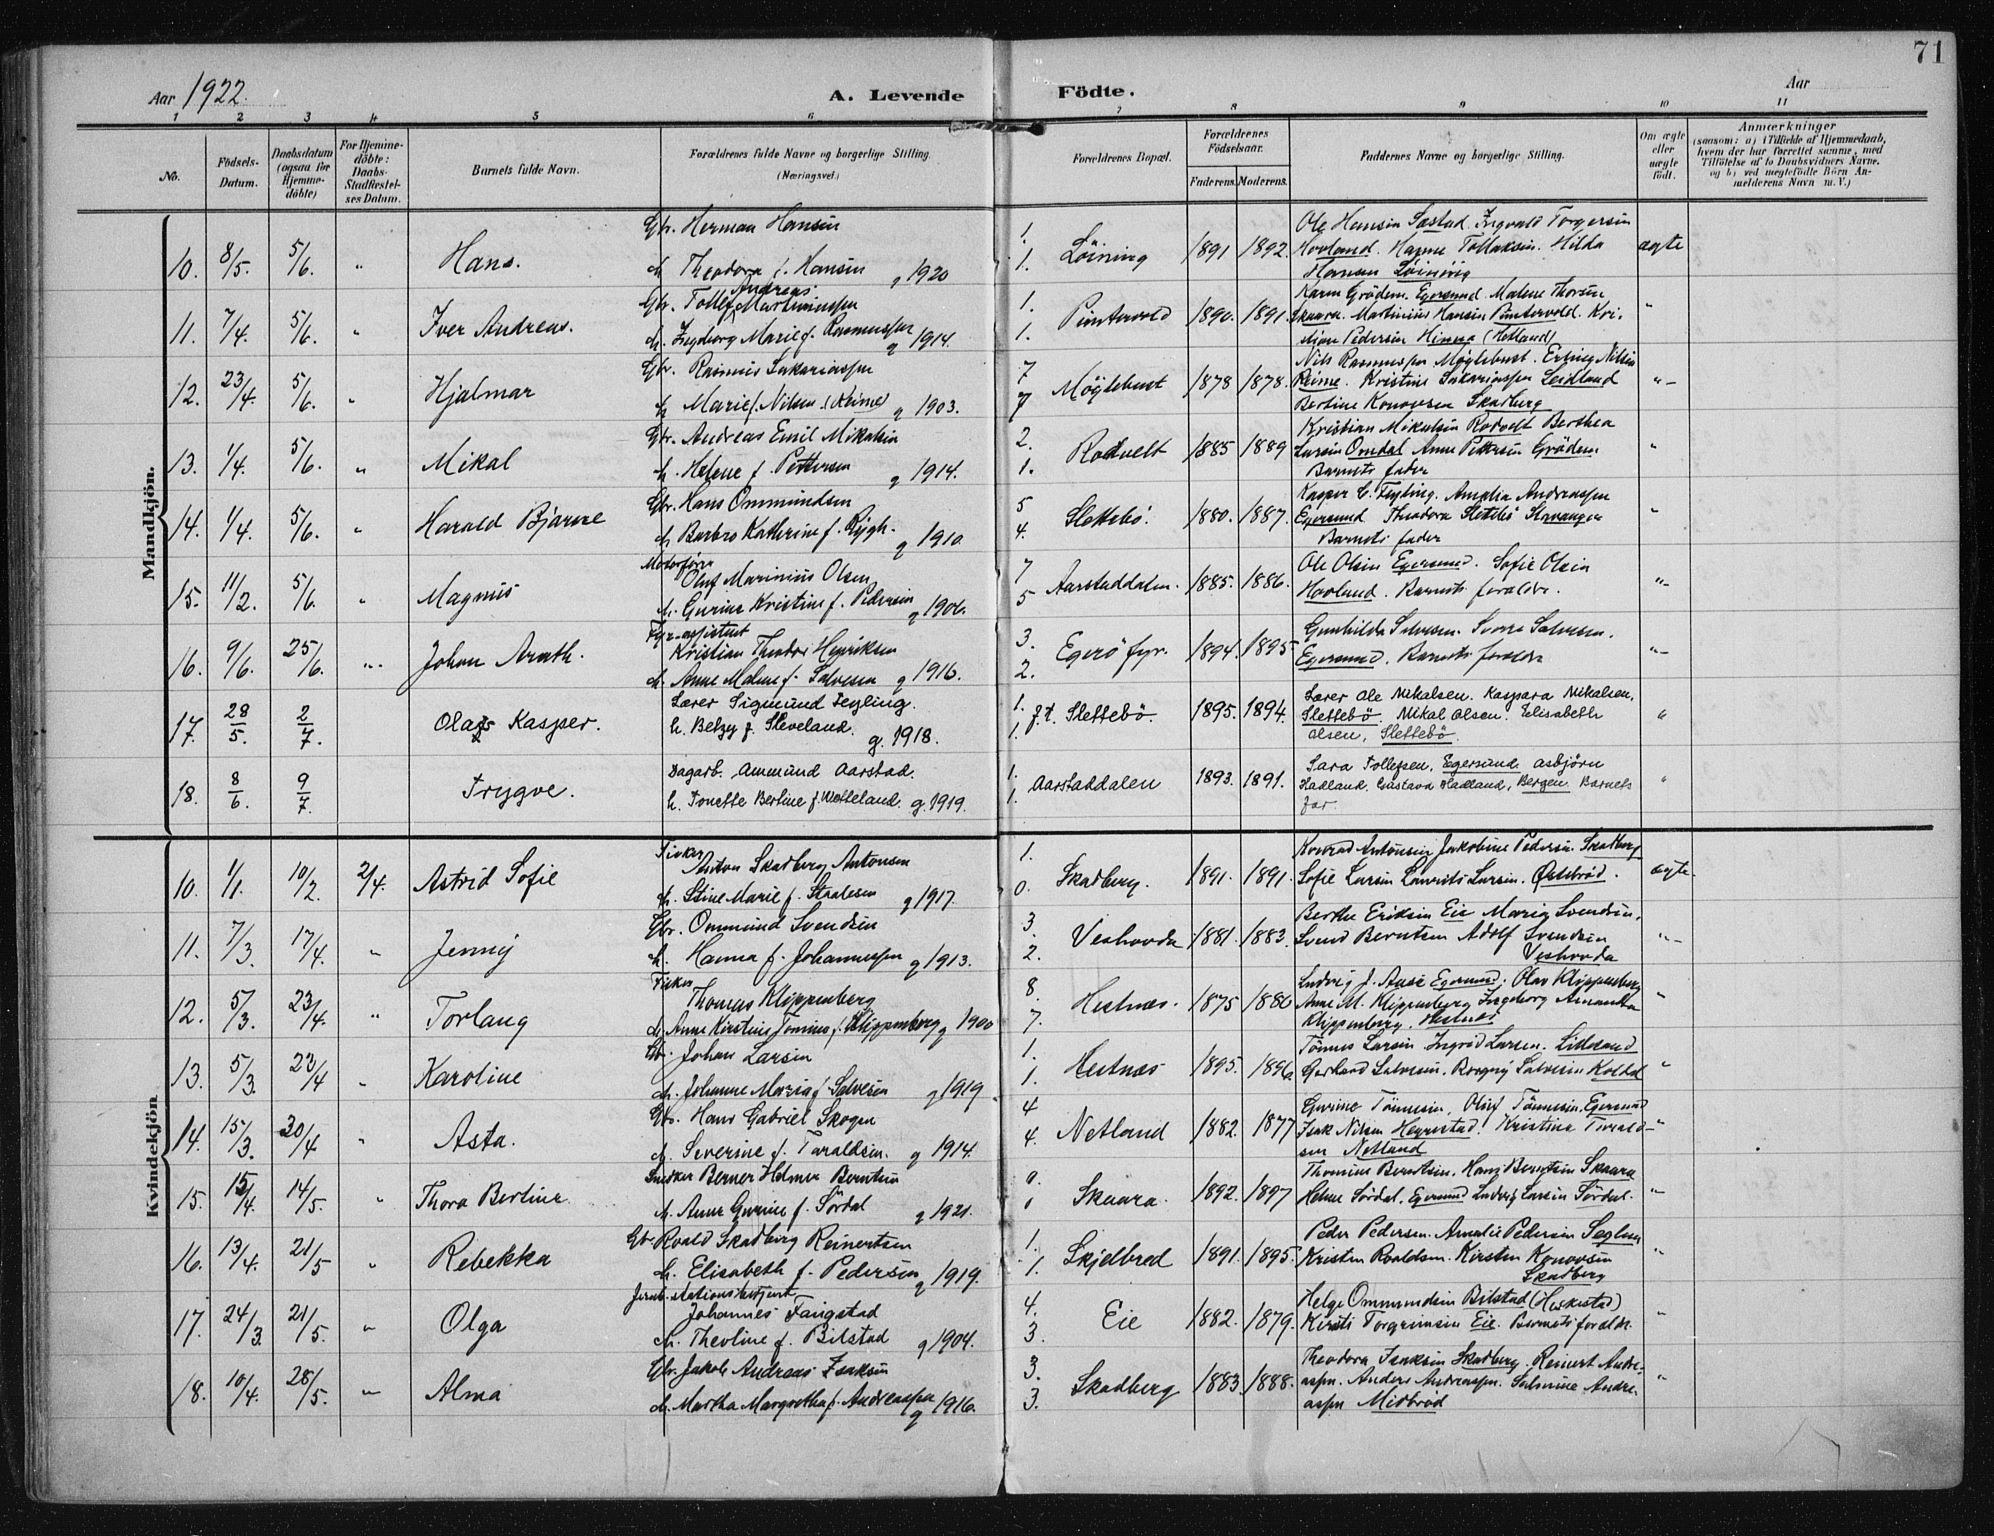 71
Aar 1922.
A. Levende Födte.
Aar
1 2 3 4 5 6 7 8 9 10 11
No.
Födsels-Datum.
Daabsdatum (ogsaa for Hjemme-döbte)
For Hjemme-döbte: Daabs-Stadfæstel-ses Datum.
Barnets fulde Navn.
Forældrenes fulde Navne og borgerlige Stilling (Næringsvei.)
Forældrenes Bopæl.
Forældrenes Födselsaar.
Faderens. Moderens.
Faddernes Navne og borgerlige Stilling.
Om ægte eller uægte födt.
Anmærkninger
(saasom: a) i Tilfælde af Hjemmedaab,
hvem der har forrettet samme, med
Tilföielse af to Daabsvidners Navne.
og b) ved uægtefödte Börn An-
melderens Navn m. V.)
Mandkjön.
Gbr. Herman Hansen
10. 8/5. 5/6. " Hans.
h. Theodora f. Hansen g 1920
1. 1. Löining 1891 1892.
Ole Hansen Sæstad. Ingvald Torgersen
Hovland. Hanne Tollaksen. Hilda
Hansen Löining
ægte
Gbr. Tollef Andreas Martiniussen
11. 7/4. 5/6. " Iver Andreas.
h. Ingeborg Marie f. Rasmussen g 1914.
1. 1. 1890. 1891.
Karen Grödem. Egersund. Malene Thorsen
Skaara. Martinius Hansen Kri-
stine Pedersen Hinna (Hetland)
"
Gbr. Rasmus Sakariassen
12. 23/4. 5/6. " Hjalmar
h. Marie f. Nilsen (Reime) g 1903.
7 7 Möglebust 1878 1878.
Nils Rasmussen Möglebust. Erling Nilsen
Reime. Kristine Sakariassen Leidland
Bertine Konovsen Skadberg
"-
Gbr. Andreas Emil Mikalsen
13. 1/4. 5/6. " Mikal
h. Helene f. Pettersen g 1914.
2. 1. Rodvelt 1885 1889
Kristian Mikalsen Rodvelt Berthea
Larsen Omdal Anne Pettersen Grödem
Barnets fader
"
Gbr. Hans Ommundsen
14. 1/4. 5/6. " Harald Bjarne
h. Barbro Kathrine f. Rygh. g 1910.
5 4. Slettebö. 1880. 1887.
Kasper C. Feyling. Amalia Andreassen
Egersund Theodora Slettebö Stavanger
Barnets fader
"
Motorförer
Oluf Marinius Olsen
15. 11/2. 5/6. " Magnus
h. Gurine Kristine f. Pedersen g 1906.
7 5 Aarstaddalen. 1885. 1886.
Ole Olsen Egersund. Sofie Olsen
Hovland. Barnets foreldre.
"-
Fyr-assistent
Kristian Theodor Henriksen
16. 9/6. 25/6. " Johan Arnth.
h. Anne Malene f. Salvesen g 1916.
3. 2. Egerö fyr. 1894. 1895
Gunhilda Salvesen. Sverre Salvesen.
Egersund. Barnets foreldre
"-
Lærer Sigmund Feyling.
17. 28/5. 2/7. Olaf Kasper.
h. Betzy f. Sleveland. g. 1918.
1. 1. f.t. Slettebö. 1895. 1894.
Lærer Ole Mikalsen. Kaspara Mikalsen,
Slettebö. Mikal Olsen. Elisabeth
Olsen, Slettebö.
"
Dagarb. Ommund Aarstad.
18. 8/6. 9/7. Trygve.
h. Tonette Bertine f. Wetteland. g. 1919.
1. 1. Aarstaddalen 1893. 1891.
Sara Tollefsen, Egersund, Asbjörn
Hadland. Gustava Hadland, Bergen. Barnets
far.
"
Kvindekjön
Fisker
Anton Skadberg Antonsen
10. 1/1. 10/2. 2/4. Astrid Sofie
h. Stine Marie f. Staalesen g 1917.
1. 0. Skadberg. 1891. 1891.
Konrad Antonsen Jakobine Pedersen Skadberg
Sofie Larsen Laurits Larsen. Östebröd.
ægte.
Gbr. Ommund Svendsen
11. 7/3. 17/4. " Jenny
h. Hanna f. Johannessen g 1913.
3. 2. Veshovda 1881. 1883.
Berthe Eriksen Eie Maria Svendsen,
Svend Berntsen Adolf Svendsen
Veshovda
"-
Fisker
Thomas Klippenberg
12. 5/3. 23/4. " Torlaug
h. Anne Kirstine f. Klippenberg g 1900
8. 7. Hestnes. 1875 1880
Ludvig J. Egersund. Olav Klippenberg
Anne M. Klippenberg Ingeborg Amanda
Klippenberg. Hestnes
"
Gb. Johan Larsen
13. 5/3. 23/4 " Karoline
h. Johanne Maria f. Salvesen g 1919.
1. 1. Hestnes 1895. 1896.
Tönnes Larsen Ingrid Larsen. Lillesand
Gerhard Salvesen. Borgny Salvesen Koldal
"
Gb. Hans Gabriel Skogen
14. 15/3. 30/4 " Asta.
h. Severine f. Taraldsen. g 1914.
4 4. Netland 1882. 1877
Gurine Tönnesen, Oluf Tönnesen. Egersund
Isak Nilsen Hegrestad. Kristine Tarald-
sen Netland
"
Snekker Berner Helmer Berntsen
15. 15/4. 14/5. " Thora Bertine
h. Anne Gurine f. Sördal g 1921.
Skaara. 1892. 1897
Thomine Berntsen. Hans Berntsen Skaara
Helene Sördal. Egersund Ludvig Larsen Sördal.
"
Gb. Roald Skadberg Reinertsen
16. 13/4. 21/5 " Rebekka
h. Elisabeth f. Pedersen g 1919.
1. 1. Skjelbred 1891. 1895.
Peder Pedersen. Amalie Pedersen Seglem
Kristen Roaldsen. Kirsten Konovsen
Skadberg
"
Jernb. stationsbetjent
Johannes Fangstad
17. 24/3 21/5. " Olga
h. Theoline f. Bilstad g 1904.
4. 3. Eie 1882. 1879.
Helge Ommundsen Bilstad (Heskestad)
Kirsti Torgrimsen Eie. Barnets foreldr.
"
Gbr. Jakob Andreas Isaksen
18. 10/4. 28/5. " Alma
h. Martha Margretha f. Andreassen g 1916.
3. 3. Skadberg 1883. 1888.
Theodora Isaksen Skadberg. Reinert Andre-
assen. Anders Andreassen. Salmine Andre-
assen Midbröd
"